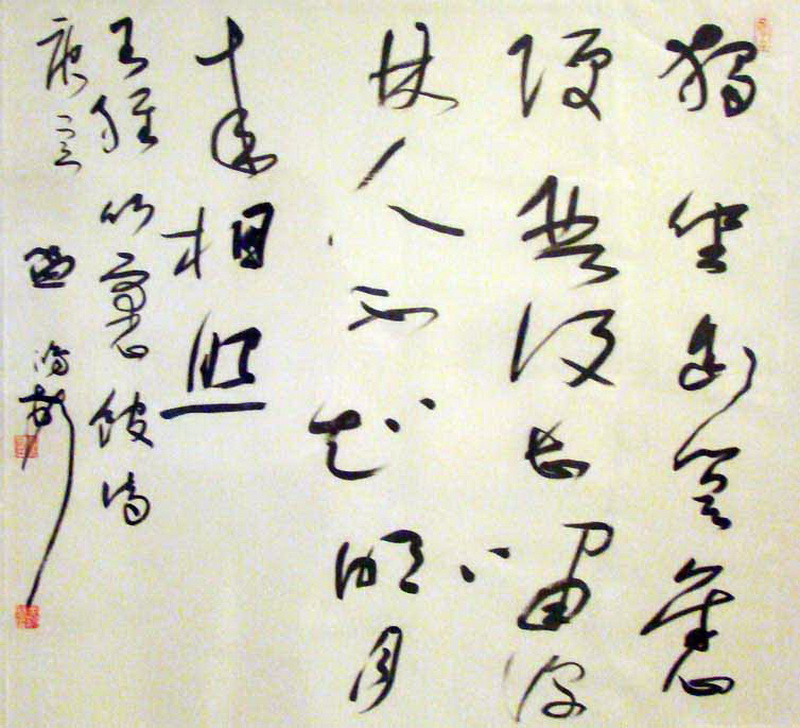 獨坐幽篁裏
彈琴復長嘯深
林人不知明月
來相照
王維竹裏館詩
庚寅